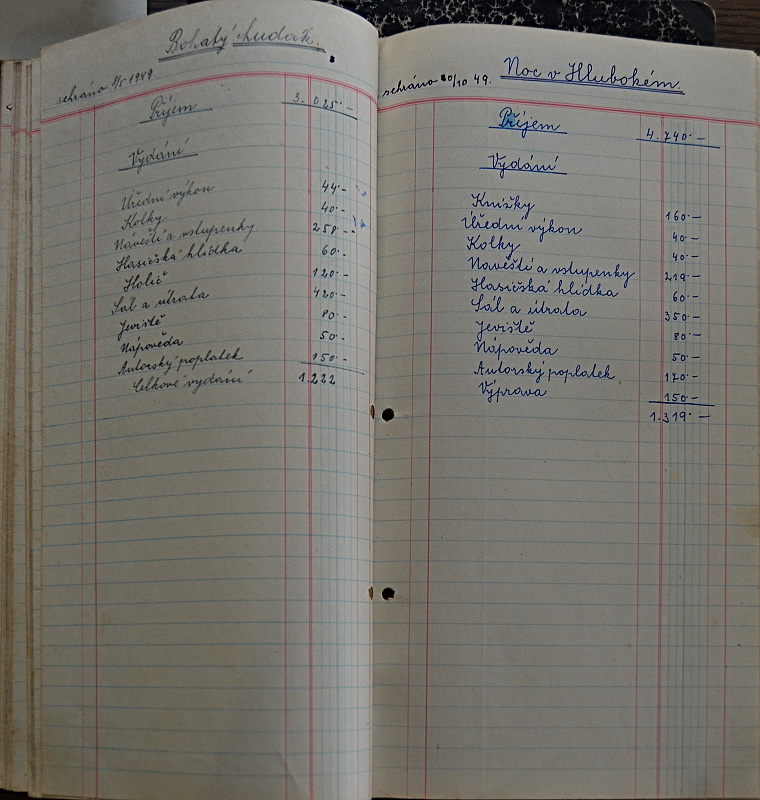 Bohatý chuďák.
sehráno 8/5 1949.
Příjem 3.025·-
Vydání
Úřední výkon 44·-
Kolky 40·-
Návěští a vstupenky 258·-
Hasičská hlídka 60·-
Holič 120·-
Sál a útrata 420·-
Jeviště 80·-
Nápověda 50·-
Autorský poplatek 150·-
Celkové vydání 1.222
Noc v Hlubokém.
sehráno 30/10 49.
Příjem 4.740·-
Vydání
Knížky 160·-
Úřední výkon 40·-
Kolky 40·-
Navěští a vstupenky 219·-
Hasičská hlídka 60·-
Sál a útrata 350·-
Jeviště 80·-
Nápověda 50·-
Autorský poplatek 170·-
Výprava 150·-
1.319·-